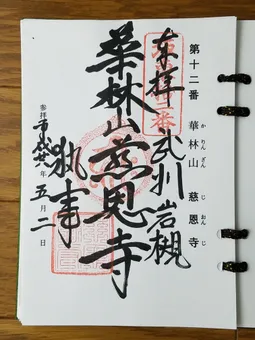 第十二番 華林山 慈恩寺
かりんざん じおんじ
奉拝 武州岩槻
華林山慈恩寺
執事
参拝 平成 年 五月二日